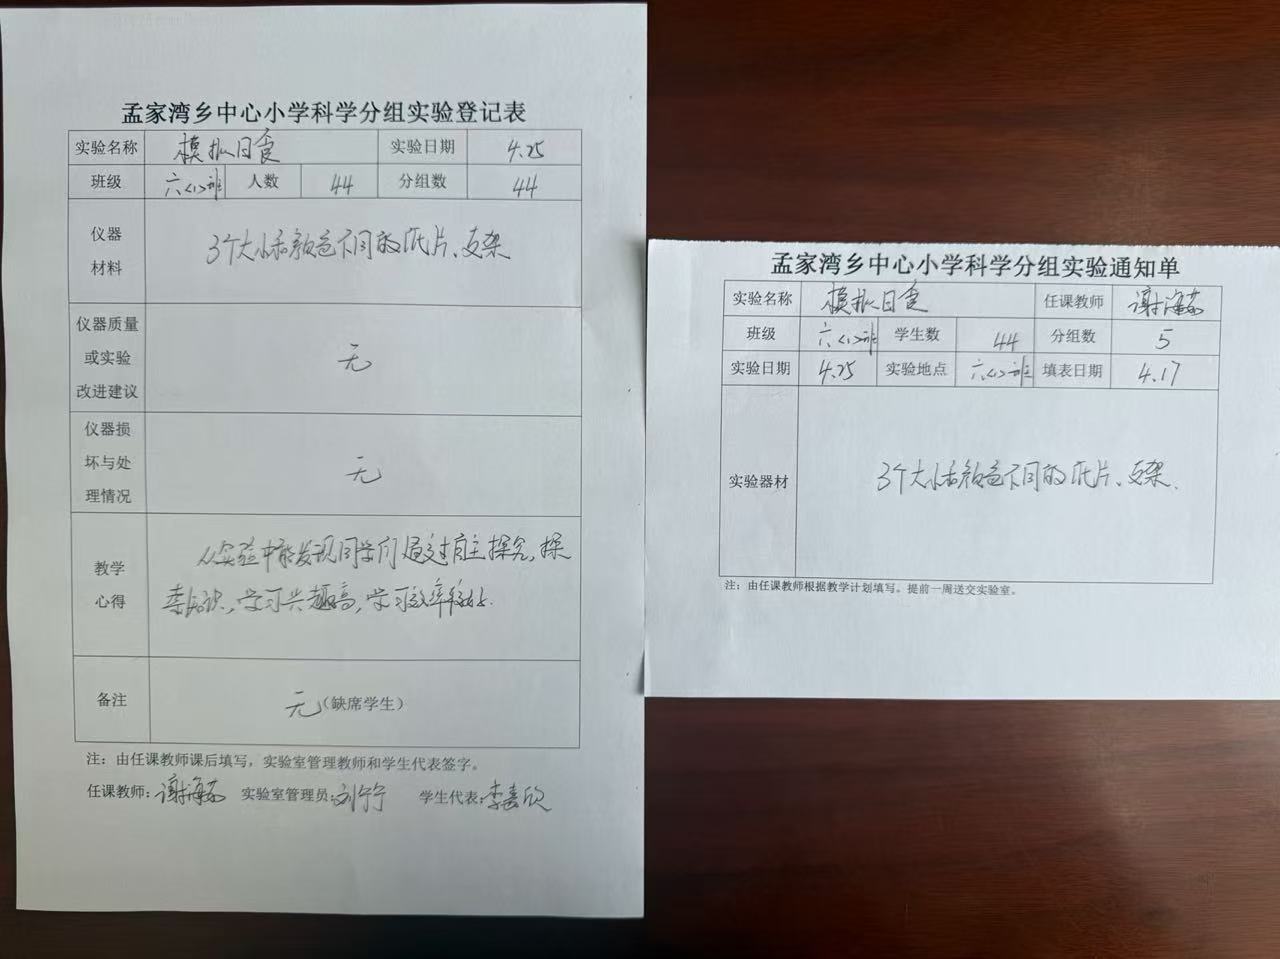 孟家湾乡中心小学科学分组实验登记表
实验名称 模拟日食 实验日期 4.25
班级 六(1)班 人数 44 分组数 44
仪器
材料
3个大小和颜色不同的纸片、支架
仪器质量
或实验
改进建议
无
仪器损
坏与处
理情况
无
教学
心得
从实验中能发现同学们通过自主探究,探
索知识,学习兴趣高,学习效率较好.
备注 无(缺席学生)
注:由任课教师课后填写,实验室管理教师和学生代表签字。
任课教师:谢海 实验室管理员:刘宁宁 学生代表:李嘉欣
孟家湾乡中心小学科学分组实验通知单
实验名称 模拟日食 任课教师 谢海
班级 六(1)班 学生数 44 分组数 5
实验日期 4.25 实验地点 六(1)班 填表日期 4.17
实验器材 3个大小和颜色不同的纸片、支架.
注:由任课教师根据教学计划填写。提前一周送交实验室。